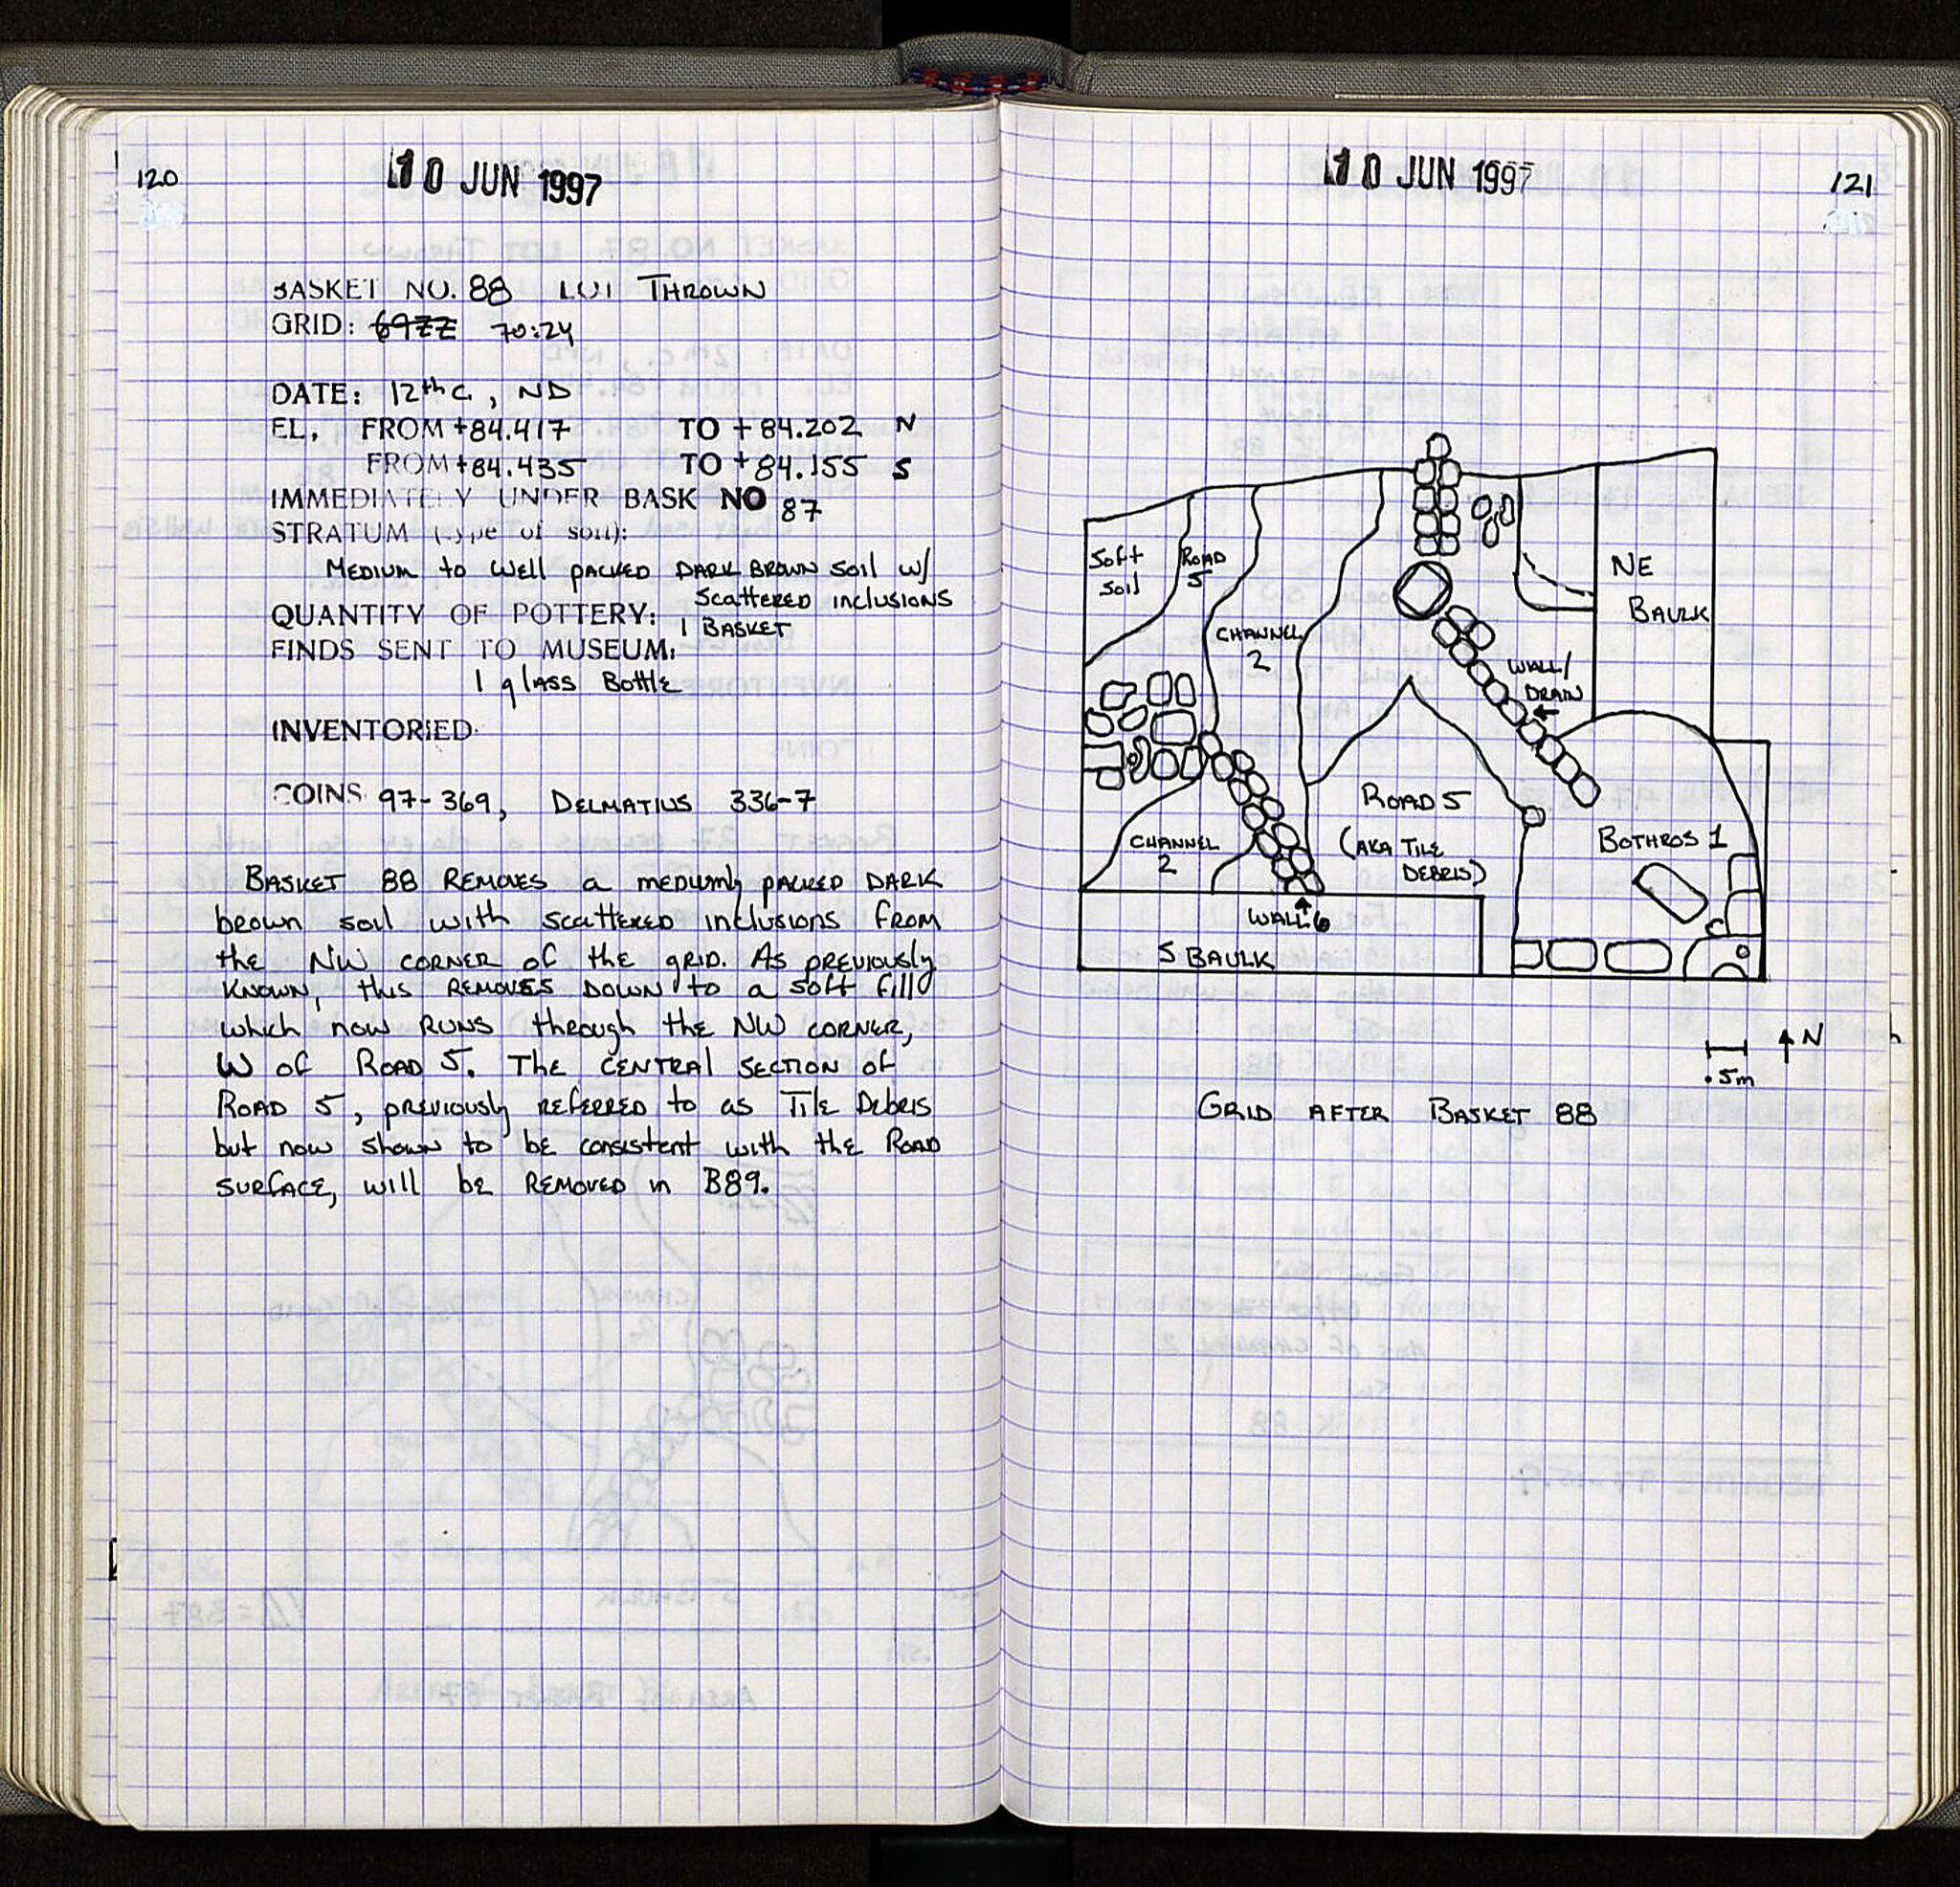 120
10 JUN 1997
BASKET NO. 88 LOT THROWN
GRID: 69ZZ 70:24
DATE: 12th c., ND
EL. FROM +84.417 TO +84.202 N
FROM +84.435 TO +84.155 S
IMMEDIATELY UNDER BASK NO 87
STRATUM (type of soil):
MEDIUM to well packed DARK BROWN soil w/
scattered inclusions
QUANTITY OF POTTERY: 1 BASKET
FINDS SENT TO MUSEUM:
1 glass Bottle
INVENTORIED
COINS 97-369, DELMATIUS 336-7
BASKET 88 REMOVES a mediumly packed DARK
brown soil with scattered inclusions from
the NW corner of the grid. As previously
known, this REMOVES DOWN to a soft fill
which now RUNS through the NW corner,
W of ROAD 5. The central section of
ROAD 5, previously referred to as Tile Debris
but now shown to be consistent with the ROAD
surface, will be REMOVED in B89.
10 JUN 1997
121
Soft
Soil
ROAD
5
CHANNEL
2
NE
BAULK
WALL/
DRAIN
ROAD 5
(AKA TILE
DEBRIS)
BOTHROS 1
CHANNEL
2
WALL 6
S BAULK
N
.5m
GRID AFTER BASKET 88